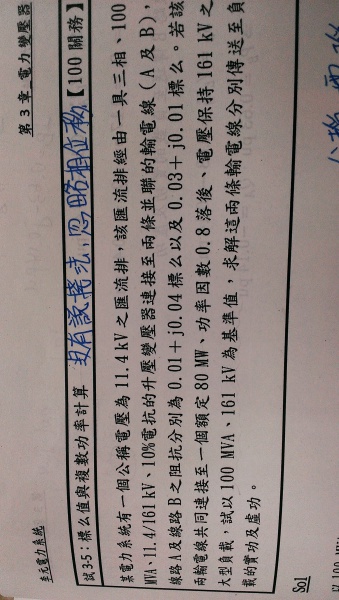 第 3 章 電力變壓器
試3-5：標么值與複數功率計算 沒有說幾次，忽略相位移【100 關務】
某電力系統有一個公稱電壓為 11.4 kV 之匯流排，該匯流排經由一具三相、100
MVA、11.4/161 kV、10%電抗的升壓變壓器連接至兩條並聯的輸電線（A 及 B），
線路 A 及線路 B 之阻抗分別為 0.01＋j0.04 標么以及 0.03＋j0.01 標么。若該
兩輸電線共同連接至一個額定 80 MW、功率因數 0.8 落後、電壓保持 161 kV 之
大型負載，試以 100 MVA、161 kV 為基準值，求解這兩條輸電線分別傳送至負
載的實功及虛功。
Sol
以 100
多元電力系統